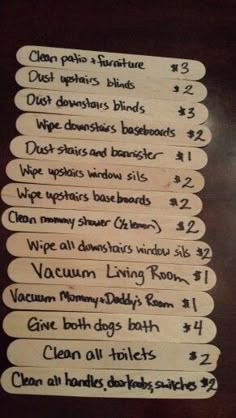 Clean patio + furniture $3
Dust upstairs blinds $2
Dust downstairs blinds $3
Wipe downstairs baseboards $2
Dust stairs and bannister $1
Wipe upstairs window sils $2
Wipe upstairs baseboards $2
Clean mommy shower (½ lemon) $2
Wipe all downstairs window sils $2
Vacuum Living Room $1
Vacuum Mommy + Daddy's Room $1
Give both dogs bath $4
Clean all toilets $2
Clean all handles, doorknobs, switches $2